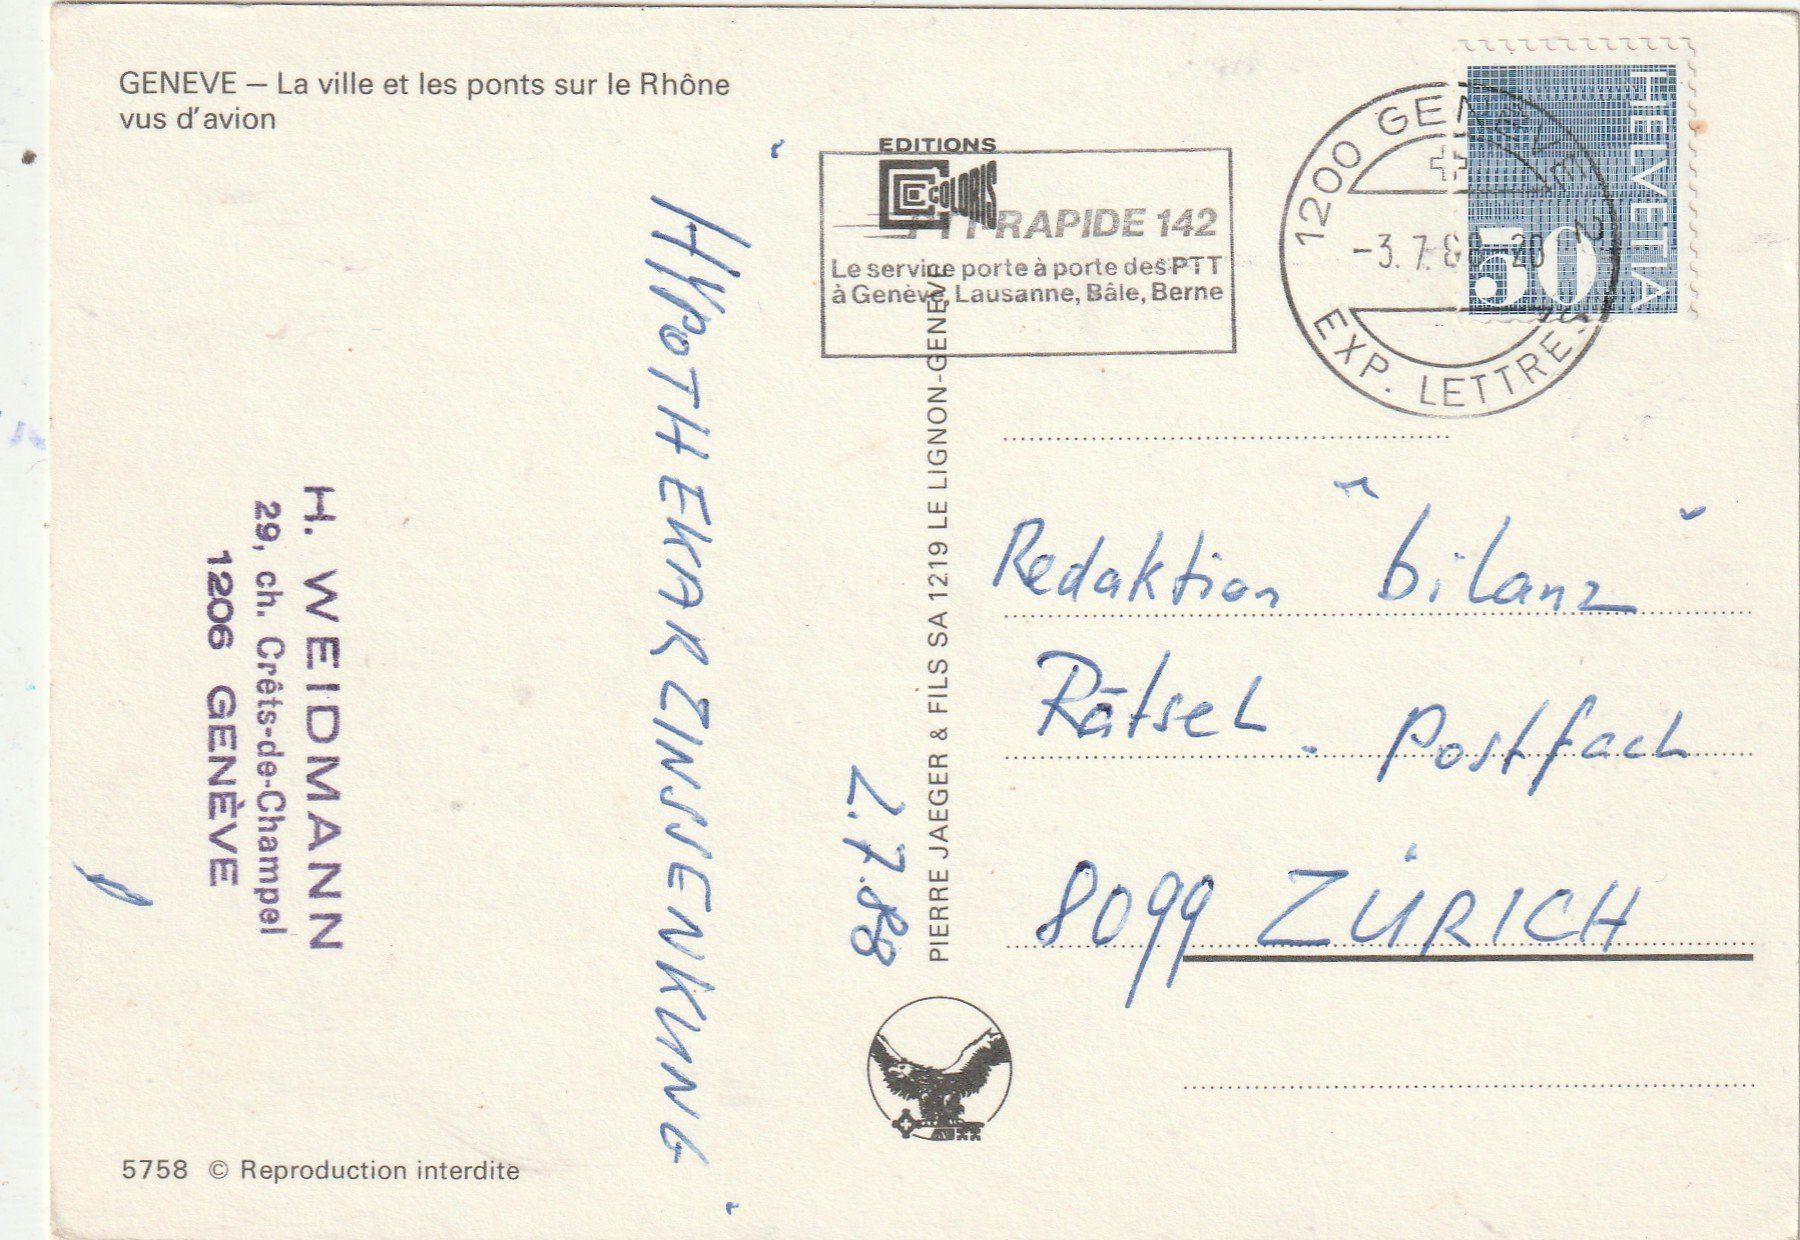 GENEVE – La ville et les ponts sur le Rhône
vus d'avion
EDITIONS
COLORIS
PTT RAPIDE 142
Le service porte à porte des PTT
à Genève, Lausanne, Bâle, Berne
1200 GENEVE 2
-3.7.88-20
EXP. LETTRES
HELVETIA
50
"HYPOTHEKARZINSSENKUNG"
2.7.88
H. WEIDMANN
29, ch. Crêts-de-Champel
1206 GENÈVE
PIERRE JAEGER & FILS SA 1219 LE LIGNON-GENEVE
Redaktion "bilanz"
Rätsel. Postfach
8099 ZÜRICH
5758 © Reproduction interdite